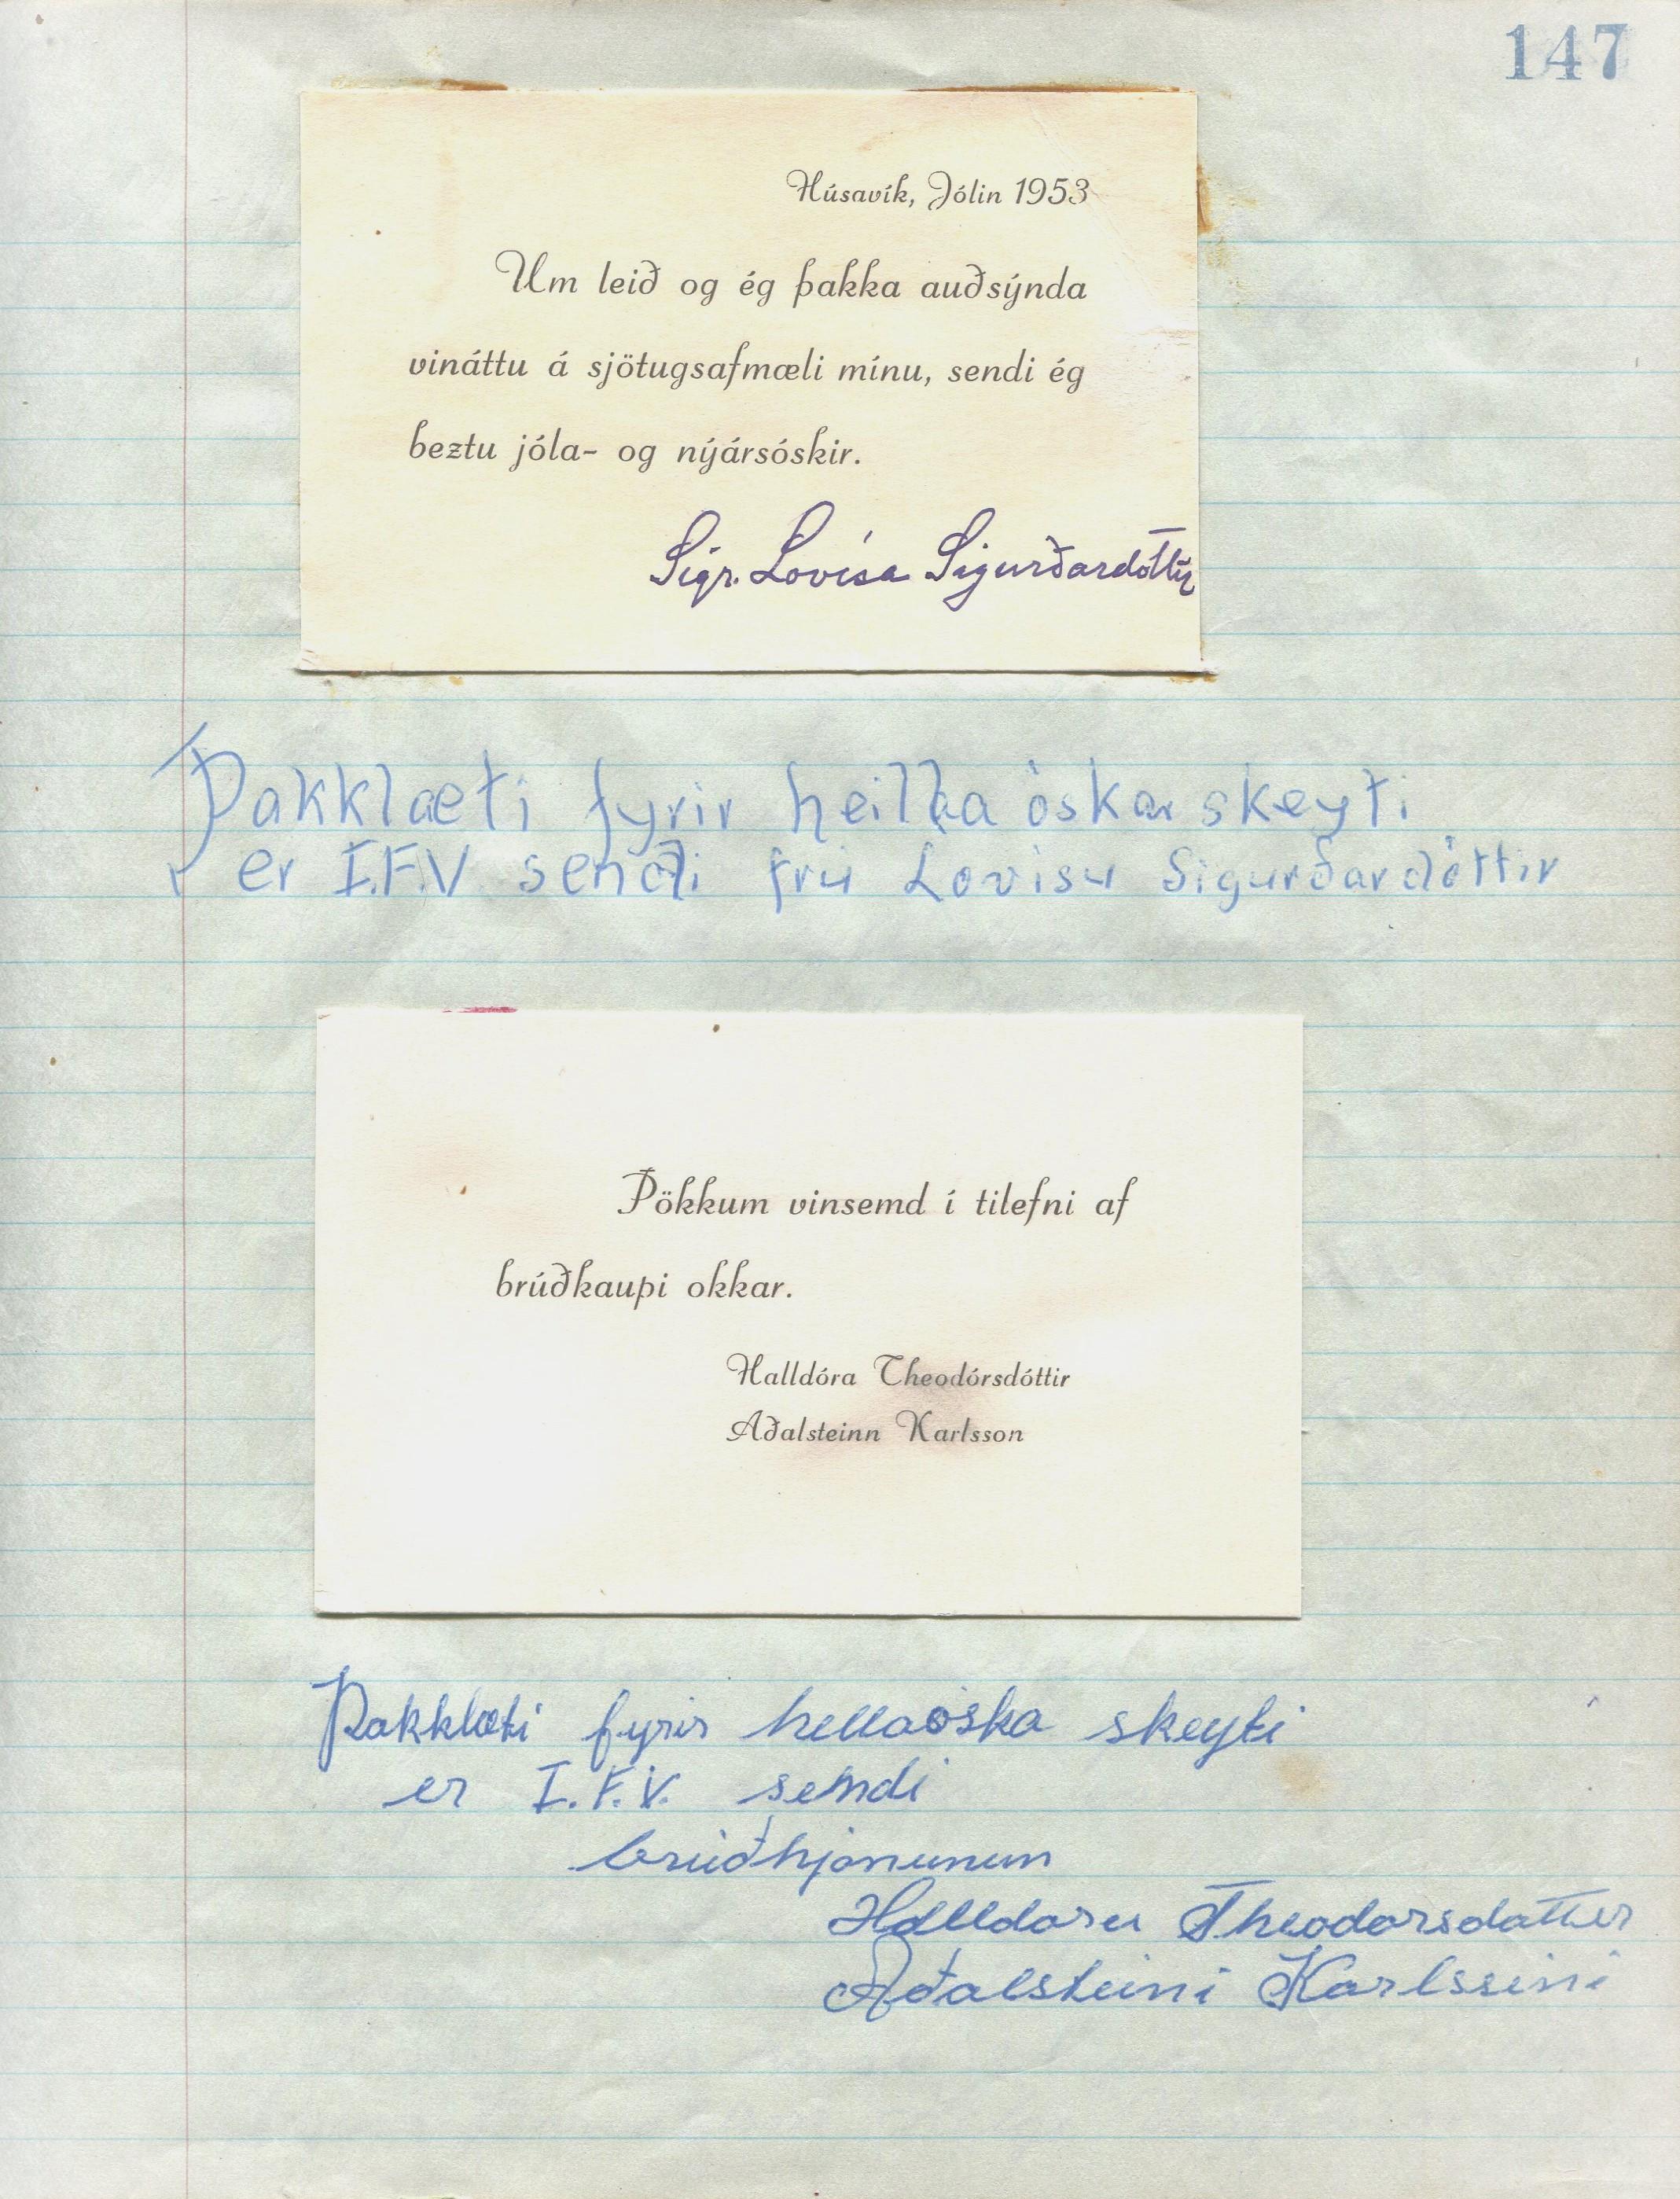 147
Húsavík, Jólin 1953
Um leið og ég þakka auðsýnda
vináttu á sjötugsafmæli mínu, sendi ég
beztu jóla- og nýársóskir.
Sigr. Lovísa Sigurðardóttir
Þakklæti fyrir heillaóskaskeyti
er I.F.V sendi frú Lovisu Sigurðardóttir
Þökkum vinsemd í tilefni af
brúðkaupi okkar.
Halldóra Theodórsdóttir
Aðalsteinn Karlsson
Þakklæti fyrir hellaóska skeyti
er I.F.V. sendi
brúðhjónunum
Halldoru Theodorsdottir
Aðalsteini Karlssini